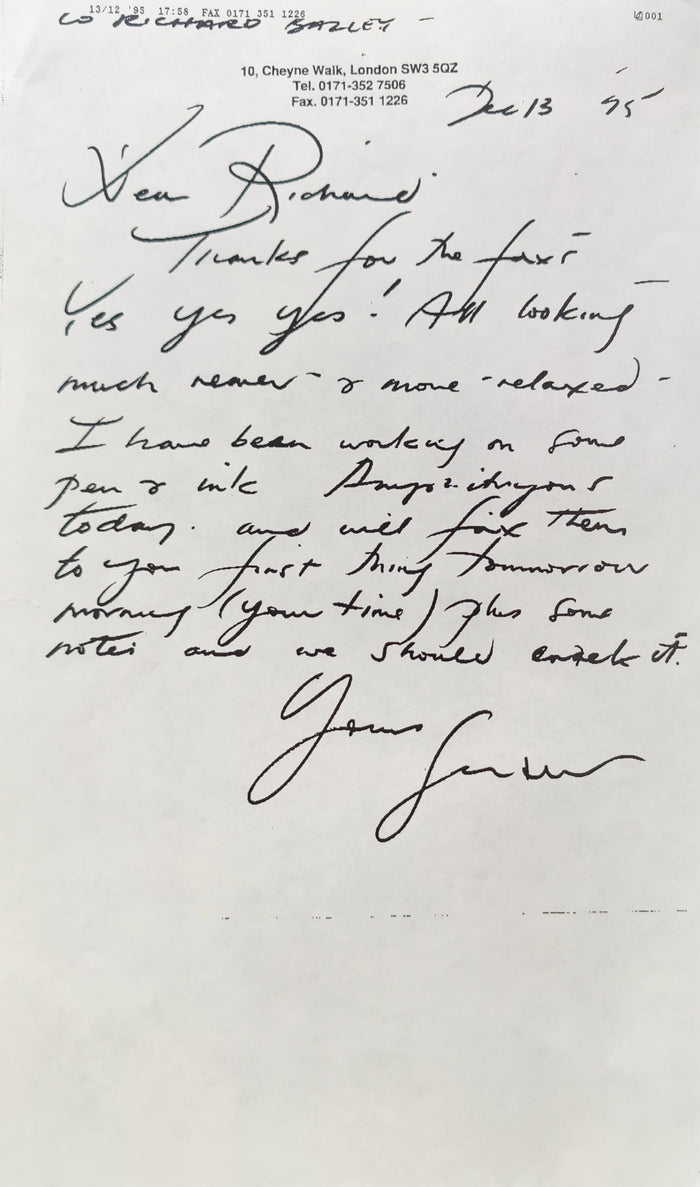 13/12 '95 17:58 FAX 0171 351 1226 001
to RICHARD BAZLEY -
10, Cheyne Walk, London SW3 5QZ
Tel. 0171-352 7506
Fax. 0171-351 1226
Dec 13 '95
Dear Richard
Thanks for the faxs
Yes yes yes! All looking
much nearer - & more - relaxed -
I have been working on some
pen & ink Amphitryons
today. and will fax them
to you first thing tommorrow
morning (your time) plus some
notes and we should crack it.
Yours Gerald